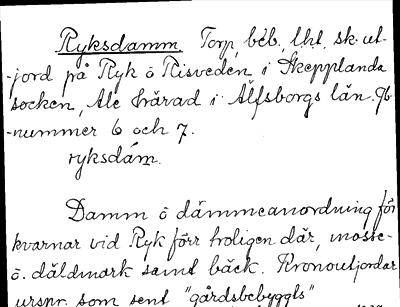 Ryksdamm. Torp, beb., lht, sk. ut-
-jord på Ryk ö Risveden i Skepplanda
socken, Ale härad i Älfsborgs län. Gb-
-nummer 6 och 7.
ryksdám.
Damm o dämmeanordning för
kvarnar vid Ryk förr troligen där, mosse-
o. däldmark samt bäck. Kronoutjordar
urspr. som sent "gårdsbebyggts"